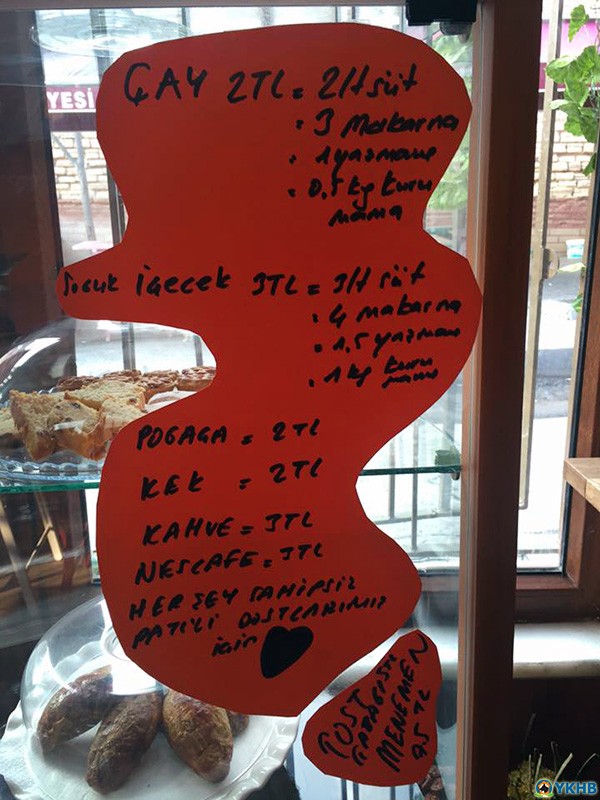 YESİ
ÇAY 2TL = 2lt süt
: 3 Makarna
: 1 yaş mama
: 0,5 kg kuru
mama
Soğuk içecek 3TL = 3lt süt
: 4 makarna
: 1,5 yaş mama
: 1 kg kuru
mama
POGAGA = 2TL
KEK = 2TL
KAHVE = 3TL
NESCAFE = 3TL
HERŞEY SAHİPSİZ
PATİLİ DOSTLARIMIZ
için
TOST
MENEMEN
TL
YKHB